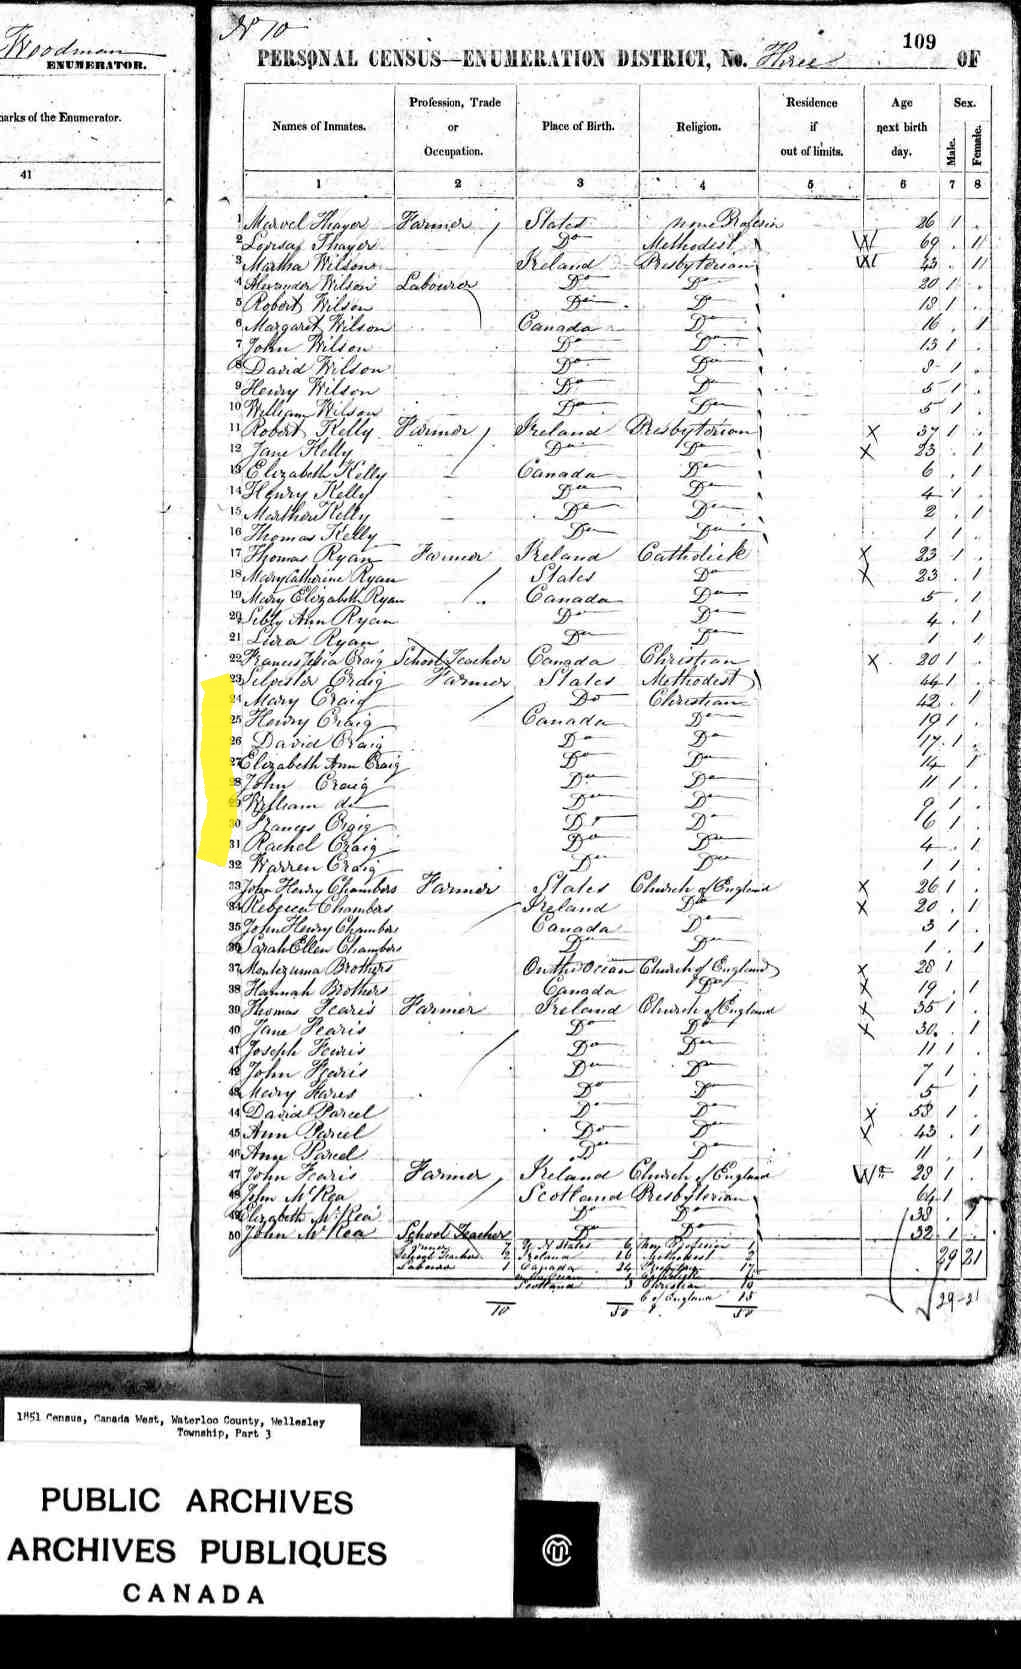 Woodman
ENUMERATOR.
arks of the Enumerator.
41
No 10
109
PERSONAL CENSUS—ENUMERATION DISTRICT, No. Three OF
Names of Inmates. Profession, Trade or Occupation. Place of Birth. Religion. Residence if out of limits. Age next birth day. Sex. Male. Female.
1 2 3 4 5 6 7 8
1 Marvel Thayer Farmer States none 26 1
2 Thayer Do Methodest W 69 11
3 Martha Wilson Ireland Presbyterian 43 11
4 Alexander Wilson Labourer Do Do 20 1
5 Robert Wilson Do Do 18 1
6 Margaret Wilson Canada Do 16 1
7 John Wilson Do Do 13 1
8 David Wilson Do Do 8 1
9 Henry Wilson Do Do 5 1
10 William Wilson Do Do 5 1
11 Robert Kelly Farmer Ireland Presbyterian X 37 1
12 Jane Kelly Do Do X 23 1
13 Elizabeth Kelly Canada Do 6 1
14 Henry Kelly Do Do 4 1
15 Martha Kelly Do Do 2 1
16 Thomas Kelly Do Do 1 1
17 Thomas Ryan Farmer Ireland Catholick X 23 1
18 Mary Catherine Ryan States Do X 23 1
19 Mary Elizabeth Ryan Canada Do 5 1
20 Sibly Ann Ryan Do Do 4 1
21 Ryan Do Do 1 1
22 Craig School Teacher Canada Christian X 20 1
23 Silvester Craig Farmer States Methodest 44 1
24 Mary Craig Do Christian 42 1
25 Henry Craig Canada Do 19 1
26 David Craig Do Do 17 1
27 Elizabeth Ann Craig Do Do 14 1
28 John Craig Do Do 11 1
29 William do Do Do 9 1
30 Frances Craig Do Do 6 1
31 Rachel Craig Do Do 4 1
32 Warren Craig Do Do 1 1
33 John Henry Chambers Farmer States Church of England X 26 1
34 Rebecca Chambers Ireland Do X 20 1
35 John Henry Chambers Canada Do 3 1
36 Sarah Ellen Chambers Do Do 1 1
37 Montezuma Brothers On the Ocean Church of England X 28 1
38 Hannah Brothers Canada Do X 19 1
39 Thomas Fearis Farmer Ireland Church of England X 35 1
40 Jane Fearis Do Do X 30 1
41 Joseph Fearis Do Do 11 1
42 John Fearis Do Do 7 1
43 Mary Do Do 5 1
44 David Parcel Do Do X 53 1
45 Ann Parcel Do Do X 43 1
46 Ann Parcel Do Do 11 1
47 John Fearis Farmer Ireland Church of England 28 1
48 John McKea Scotland Presbyterian 64 1
49 Elizabeth McKea Do Do 38 1
50 John McKea School Teacher Do Do 32 1
Farmer 7 U States 6 1
School Teacher 2 Ireland Methodest 2 29 21
Labourer 1 Canada 24 17
Scotland 3 Christian 10
C of England 15
10 50 50 29-21
1851 Census, Canada West, Waterloo County, Wellesley
Township, Part 3
PUBLIC ARCHIVES
ARCHIVES PUBLIQUES
CANADA